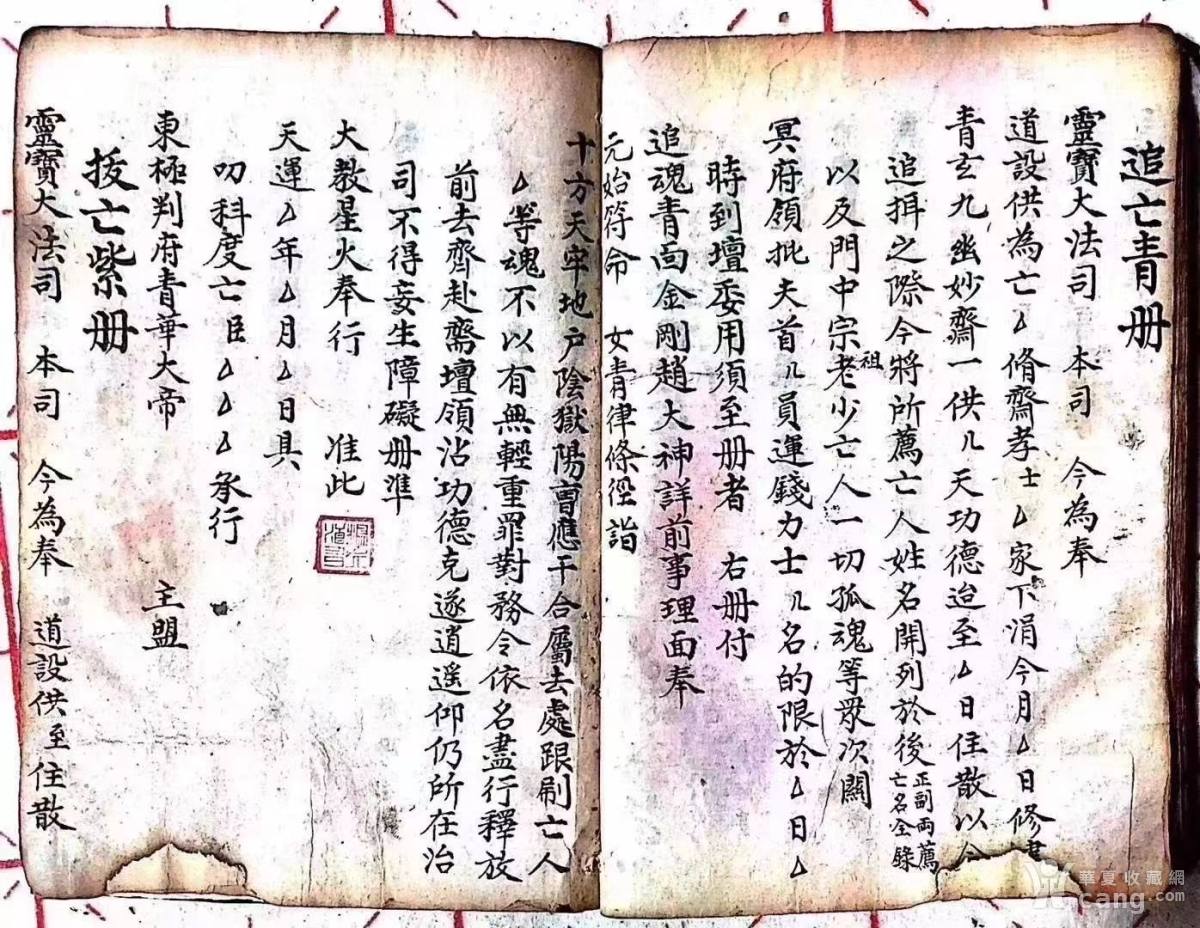 追亡青册
靈寶大法司 本司 今為奉
道設供為亡厶脩齋孝士厶家下涓今月厶日修建
青玄九幽妙齋一供几天功德迨至厶日住散以今
追捐之際今將所薦亡人姓名開列於後正副両薦亡名全錄
以及門中宗祖老少亡人一切孤魂等眾次關
冥府領批夫首几員運錢力士几名的限於厶日厶
時到壇委用須至册者 右册付
追魂青面金剛趙大神詳前事理面奉
元始符命 女青律條徑詣
十方天牢地户陰獄陽曹應干合屬去處跟刷亡人
厶等魂不以有無輕重罪對務令依名盡行釋放
前去齊赴齋壇領沾功德克遂逍遥仰仍所在治
司不得妄生障礙册準
大教星火奉行 准此
天運厶年厶月厶日具
叨科度亡臣厶厶厶承行
東極判府青華大帝 主盟
拔亡紫册
靈寶大法司 本司 今為奉 道設供至住散
華夏收藏網
cang.com